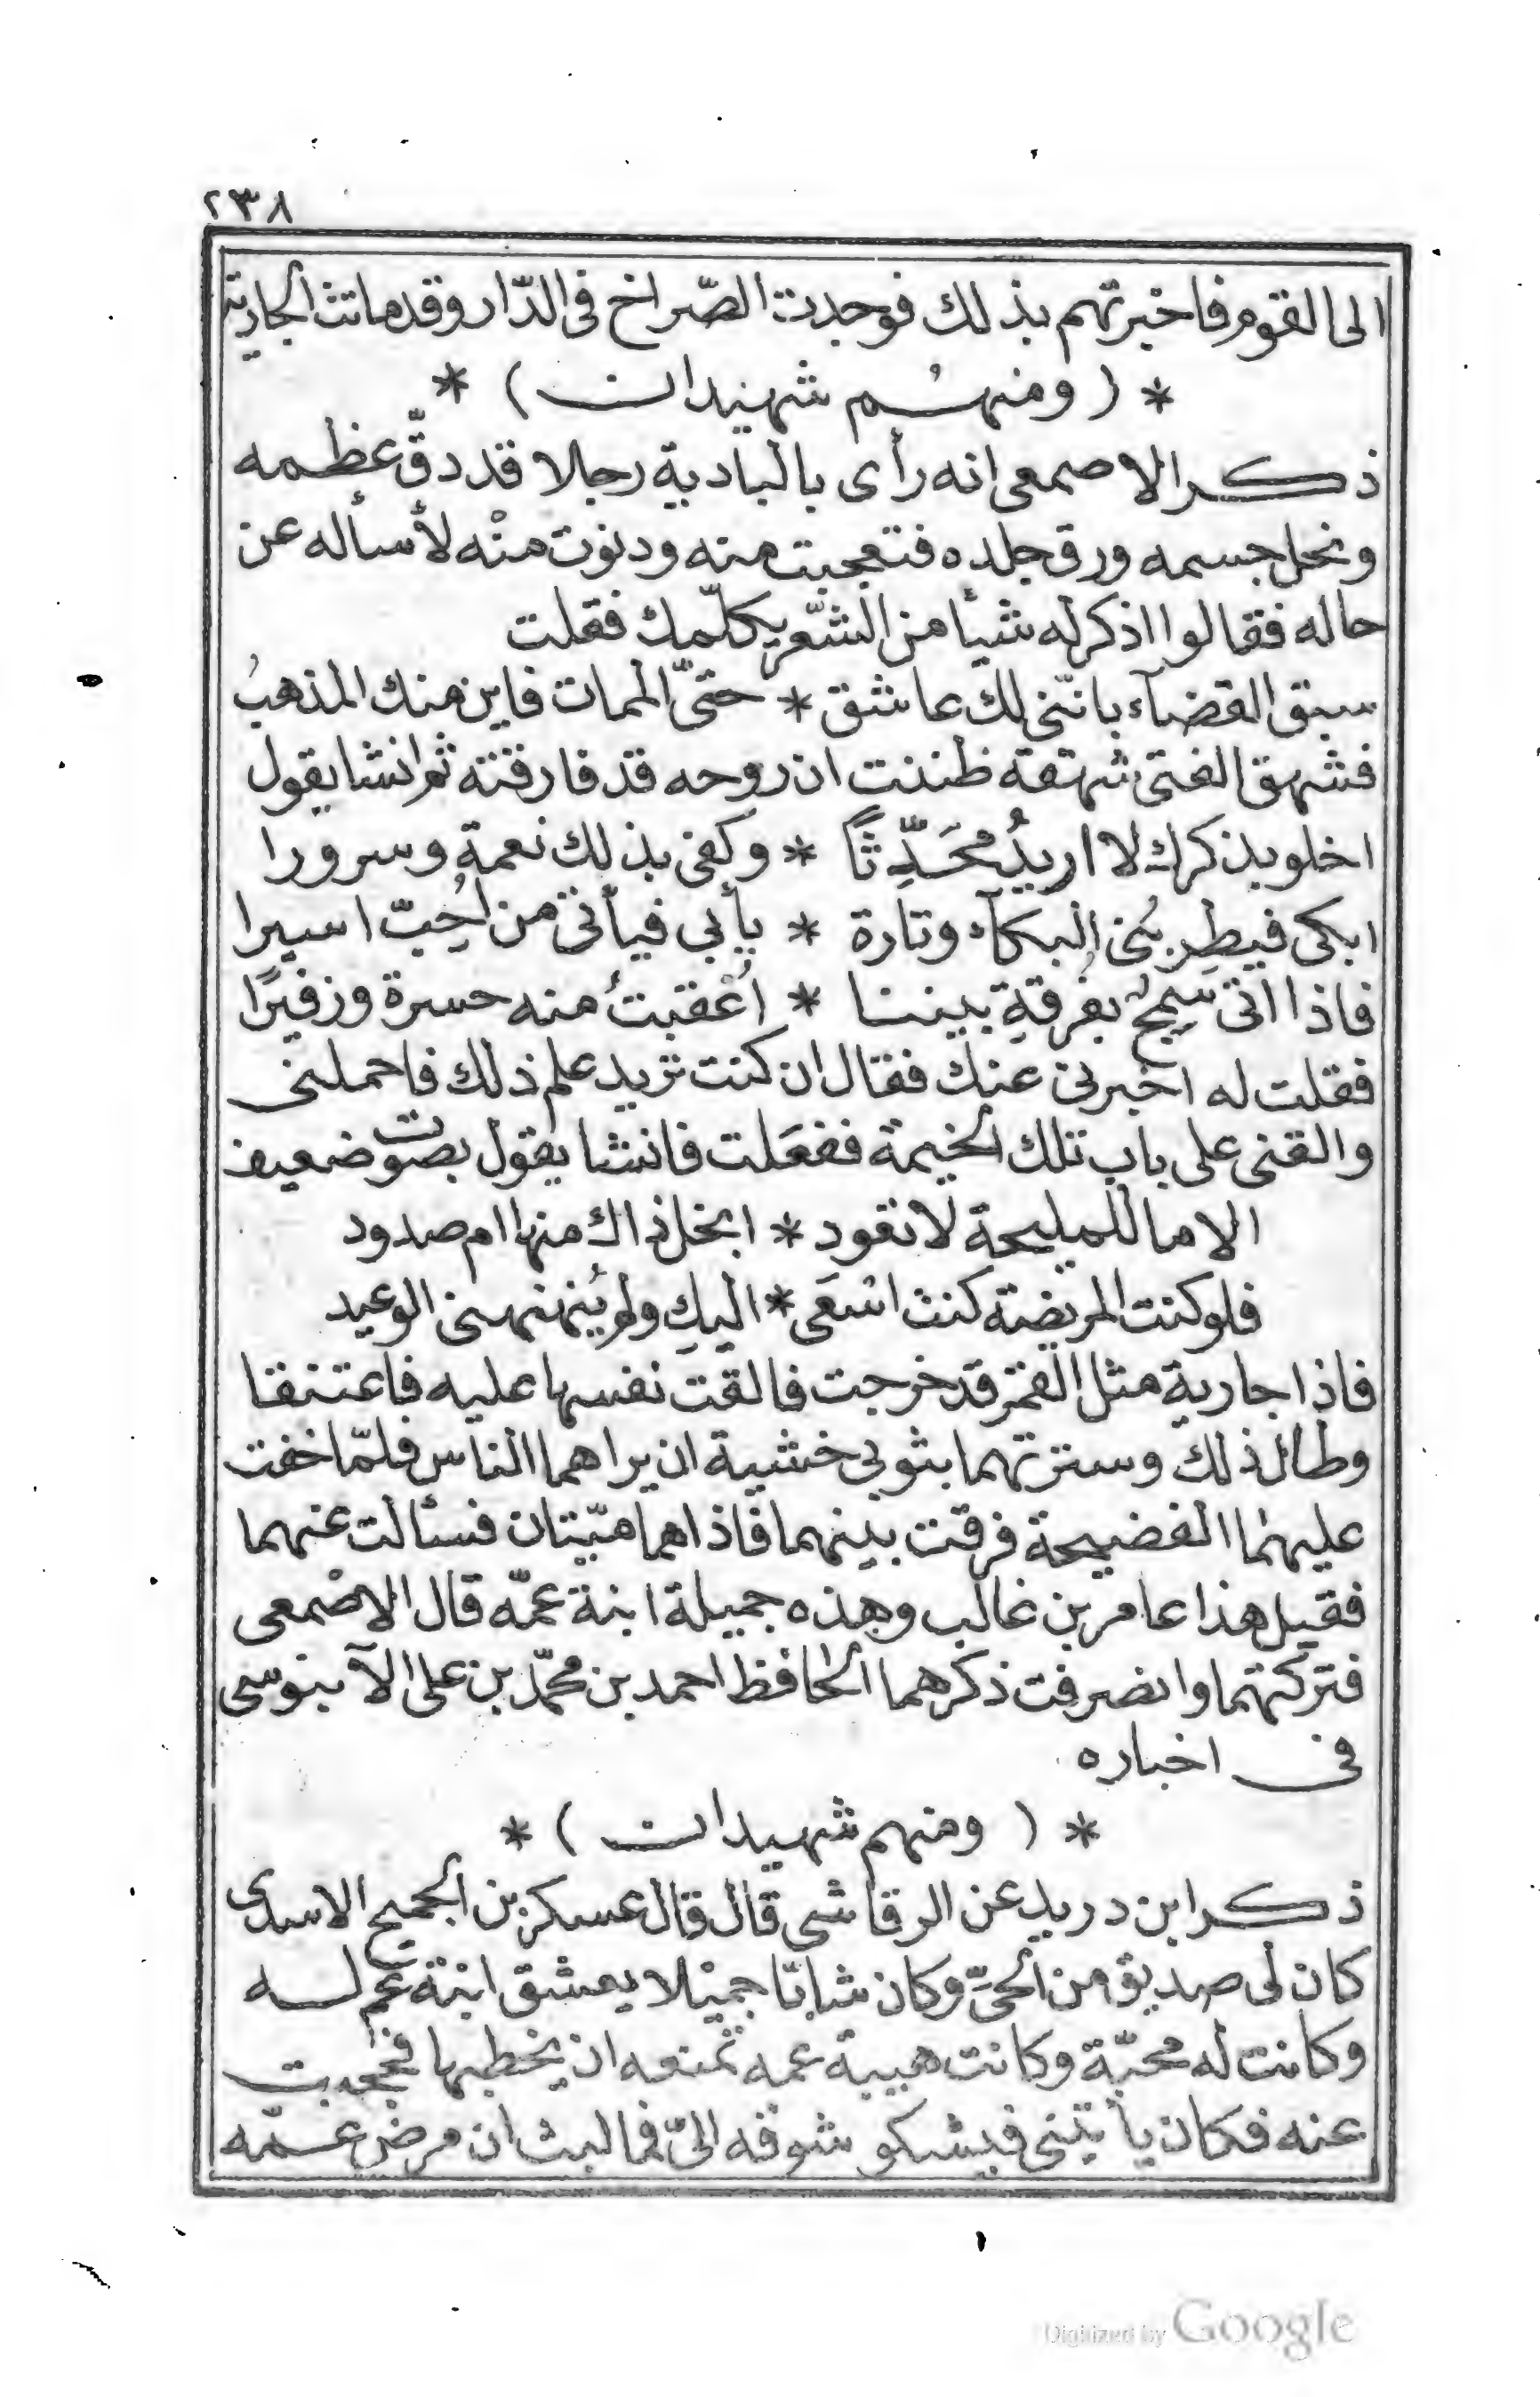 ٢٣٨
الى القوم فاخبرتهم بذلك فوجدت الصّراخ فى الدّار وقد ماتت الجارية
* ( ومنهُم شهيدان ) *
ذكر الاصمعى انه رأى بالبادية رجلا قد دقّ عظمه
ونحل جسمه ورق جلده فتعجبت منه ودنوت منْه لأسأله عن
حاله فقالوا اذكر له شيأ من الشّعر يكلّمك فقلت
سبق القضآء بانّنى لك عاشق * حتىّ الممات فاين منك المذهبُ
فشهق الفتى شهقة ظننت ان روحه قد فارقته ثم انشا يقول
اخلو بذكرك لا اريدُ مُحَدِّثاً * وكفى بذلك نعمة وسرورا
ابكى فيطرِبُنى البكآء وتارة * يأبى فيأتى من اُحِبّ اسيرا
فاذا اتى سمِجٌ بفُرقةِ بيننا * اُعْقبتُ منه حسرة وزفيرًا
فقلت له اخبرنى عنك فقال ان كنت تريد علم ذلك فاحملنى
والقنى على باب تلك الخيمة ففعَلت فانشا يقول بصوت ضعيف
الا ما للمليحة لا تعود * ابخل ذاك منها ام صدود
فلو كنت المريضة كنت اسْعَى * اليكِ ولم يُنهنهنى الوعيد
فاذا جارية مثل القمر قد خرجت فالقت نفسها عليه فاعتنقا
وطال ذلك وسترتهما بثوبى خشية ان يراهما الناس فلمّا خفت
عليهما الفضيحة فرقت بينهما فاذا هما ميّتان فسألت عنهما
فقيل هذا عامر بن غالب وهذه جميلة ابنة عمّه قال الاصْمعى
فتركتهما وانصرفت ذكرهما الحافظ احمد بن محمّد بن على الآبنوسى
فى اخباره
* ( ومنهم شهيدان ) *
ذكر ابن دريد عن الرقاشى قال قال عسكر بن الجميح الاسدى
كان لى صديق من الحىّ وكان شابّا جميْلا يعشق ابنة عم له
وكانت له محبّة وكانت هيبة عمه تمنعه ان يخطبها فحجبت
عنه فكان يأتينى فيشكو شوقه الىّ فما لبث ان مرض عمّه
Digitized by Google